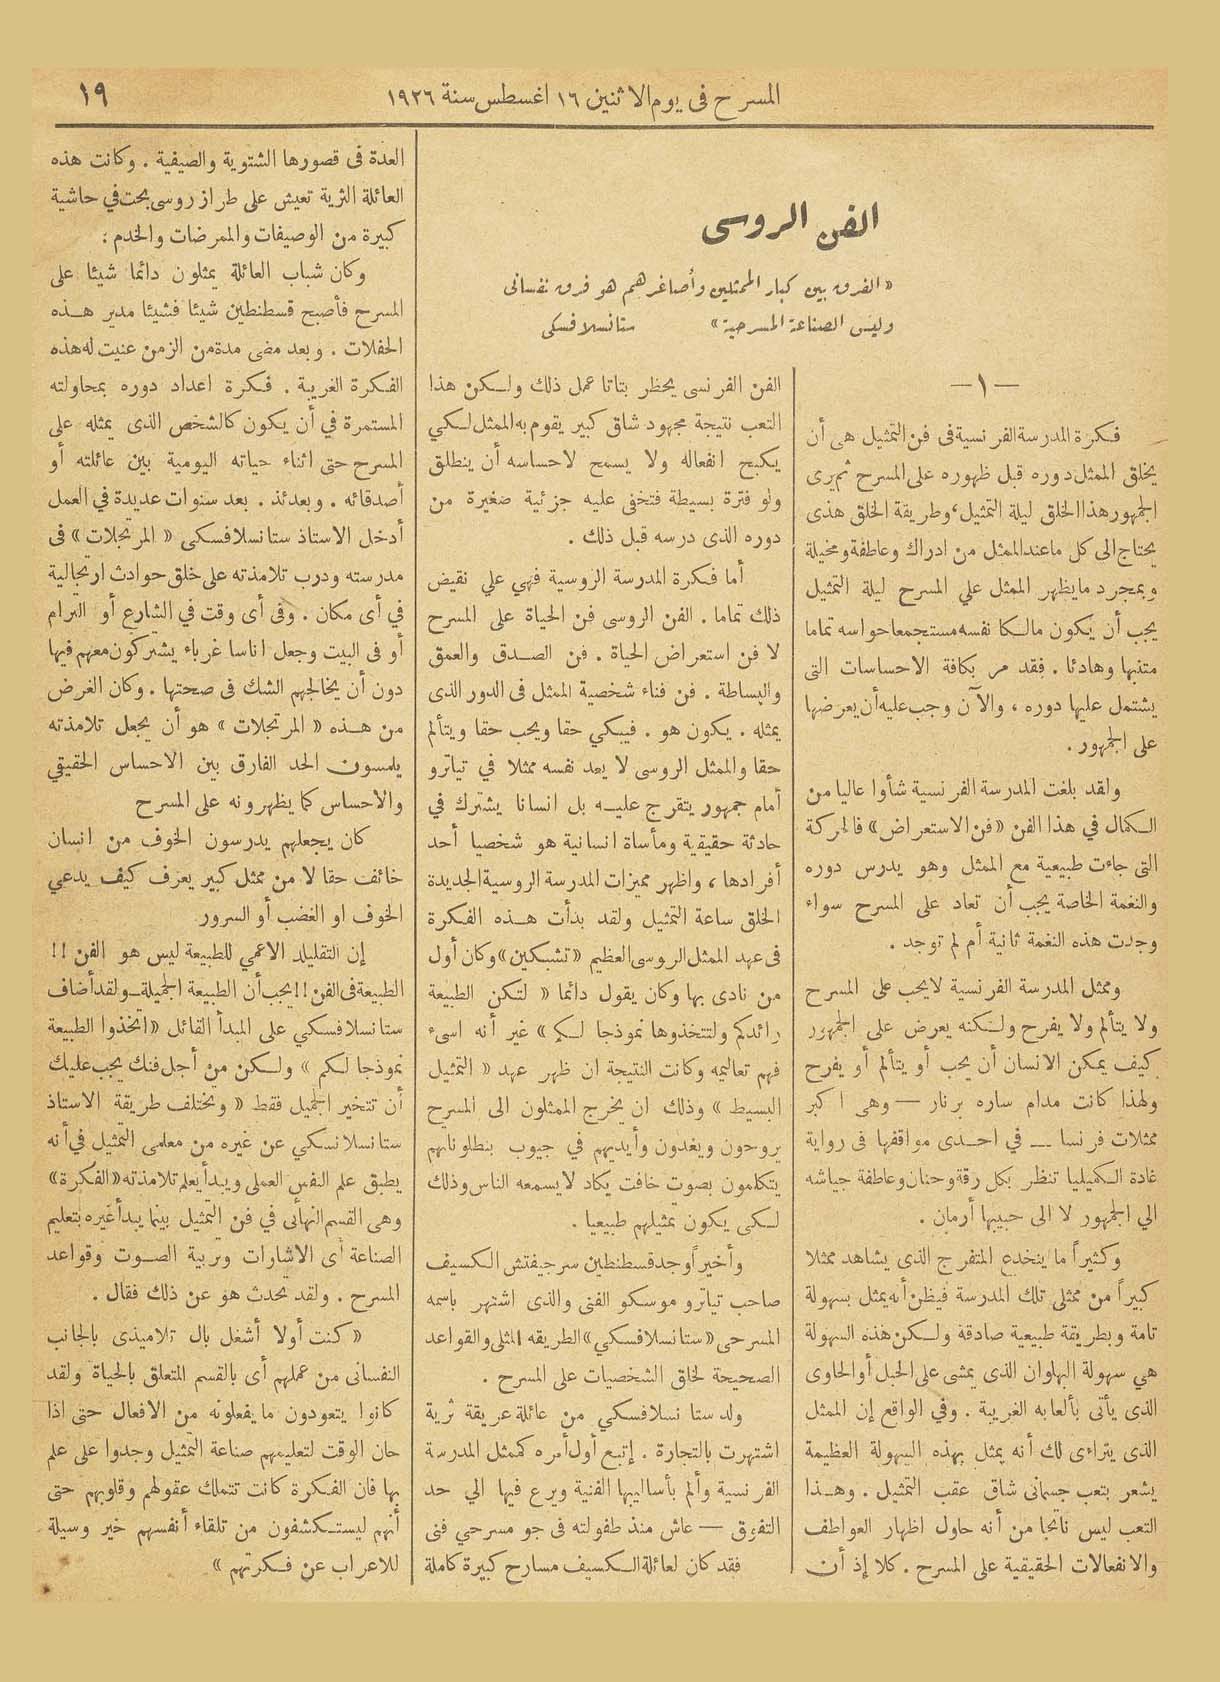 المسرح فى يوم الاثنين ١٦ اغسطس سنة ١٩٢٦
١٩
الفن الروسى
« الفرق بين كبار الممثلين وأصاغرهم هو فرق نفسانى
وليس الصناعة المسرحية » ستانسلافسكى
— ١ —
فكرة المدرسة الفرنسية فى فن التمثيل هى أن
يخلق الممثل دوره قبل ظهوره على المسرح ثم يرى
الجمهور هذا الخلق ليلة التمثيل، وطريقة الخلق هذى
يحتاج الى كل ما عند الممثل من ادراك وعاطفة ومخيلة
وبمجرد ما يظهر الممثل علي المسرح ليلة التمثيل
يجب أن يكون مالكا نفسه مستجمعا حواسه تماما
متنبها وهادئا . فقد مر بكافة الاحساسات التى
يشتمل عليها دوره ، والآن وجب عليه أن يعرضها
على الجمهور .
ولقد بلغت المدرسة الفرنسية شأوا عاليا من
الكمال في هذا الفن «فن الاستعراض» فالحركة
التى جاءت طبيعية مع الممثل وهو يدرس دوره
والنغمة الخاصة يجب أن تعاد على المسرح سواء
وجدت هذه النغمة ثانية أم لم توجد .
وممثل المدرسة الفرنسية لايحب على المسرح
ولا يتألم ولا يفرح ولكنه يعرض على الجمهور
كيف يمكن الانسان أن يحب أو يتألم أو يفرح
ولهذا كانت مدام ساره برنار — وهى اكبر
ممثلات فرنسا — في احدى مواقفها فى رواية
غادة الكميليا تنظر بكل رقة وحنان وعاطفة جياشه
الي الجمهور لا الى حبيبها أرمان .
وكثيراً ما ينخدع المتفرج الذى يشاهد ممثلا
كبيراً من ممثلى تلك المدرسة فيظن أنه يمثل بسهولة
تامة وبطريقة طبيعية صادقة ولكن هذه السهولة
هي سهولة البهلوان الذى يمشى على الحبل أو الحاوى
الذى يأتى بألعابه الغريبة . وفي الواقع إن الممثل
الذى يتراءى لك أنه يمثل بهذه السهولة العظيمة
يشعر بتعب جسمانى شاق عقب التمثيل . وهذا
التعب ليس ناتجا من أنه حاول اظهار العواطف
والانفعالات الحقيقية على المسرح . كلا إذ أن
الفن الفرنسى يحظر بتاتا عمل ذلك ولكن هذا
التعب نتيجة مجهود شاق كبير يقوم به الممثل لكي
يكبح انفعاله ولا يسمح لاحساسه أن ينطلق
ولو فترة بسيطة فتخفى عليه جزئية صغيرة من
دوره الذى درسه قبل ذلك .
أما فكرة المدرسة الروسية فهي علي نقيض
ذلك تماما . الفن الروسى فن الحياة على المسرح
لا فن استعراض الحياة . فن الصدق والعمق
والبساطة . فن فناء شخصية الممثل فى الدور الذى
يمثله . يكون هو . فيبكي حقا ويحب حقا ويتألم
حقا والممثل الروسى لا يعد نفسه ممثلا في تياترو
أمام جمهور يتفرج عليه بل انسانا يشترك في
حادثة حقيقية ومأساة انسانية هو شخصيا أحد
أفرادها ، واظهر مميزات المدرسة الروسية الجديدة
الخلق ساعة التمثيل ولقد بدأت هذه الفكرة
فى عهد الممثل الروسى العظيم «تشبكين» وكان أول
من نادى بها وكان يقول دائما « لتكن الطبيعة
رائدكم ولتتخذوها نموذجا لكم » غير أنه اسىء
فهم تعاليمه وكانت النتيجة ان ظهر عهد « التمثيل
البسيط » وذلك ان يخرج الممثلون الى المسرح
يروحون ويغدون وأيديهم في جيوب بنطلوناتهم
يتكلمون بصوت خافت يكاد لايسمعه الناس وذلك
لكى يكون تمثيلهم طبيعيا .
وأخيراً وجد قسطنطين سرجيفتش الكسيف
صاحب تياترو موسكو الفنى والذى اشتهر باسمه
المسرحى «ستانسلافسكي» الطريقه المثلى والقواعد
الصحيحة لخلق الشخصيات على المسرح .
ولد ستانسلافسكي من عائلة عريقة ثرية
اشتهرت بالتجارة . إتبع أول أمره كممثل المدرسة
الفرنسية وألم بأساليبها الفنية وبرع فيها الي حد
التفوق — عاش منذ طفولته فى جو مسرحي فنى
فقد كان لعائلة الكسيف مسارح كبيرة كاملة
العدة فى قصورها الشتوية والصيفية . وكانت هذه
العائلة الثرية تعيش على طراز روسى بحت في حاشية
كبيرة من الوصيفات والممرضات والخدم :
وكان شباب العائلة يمثلون دائما شيئا على
المسرح فأصبح قسطنطين شيئا فشيئا مدير هذه
الحفلات . وبعد مضى مدة من الزمن عنيت له هذه
الفكرة الغريبة . فكرة اعداد دوره بمحاولته
المستمرة في أن يكون كالشخص الذى يمثله على
المسرح حتى اثناء حياته اليومية بين عائلته أو
أصدقائه . وبعدئذ . بعد سنوات عديدة في العمل
أدخل الاستاذ ستانسلافسكى « المرتجلات » فى
مدرسته ودرب تلامذته على خلق حوادث ارتجالية
في أى مكان . وفى أى وقت في الشارع أو الترام
أو فى البيت وجعل اناسا غرباء يشتركون معهم فيها
دون أن يخالجهم الشك فى صحتها . وكان الغرض
من هذه « المرتجلات » هو أن يجعل تلامذته
يلمسون الحد الفارق بين الاحساس الحقيقي
والاحساس كما يظهرونه على المسرح
كان يجعلهم يدرسون الخوف من انسان
خائف حقا لا من ممثل كبير يعرف كيف يدعي
الخوف او الغضب أو السرور
إن التقليد الاعمي للطبيعة ليس هو الفن !!
الطبيعة فى الفن !! يجب أن الطبيعة الجميلة — ولقد أضاف
ستانسلافسكي على المبدأ القائل «اتخذوا الطبيعة
نموذجا لكم » ولكن من أجل فنك يجب عليك
أن تتخير الجميل فقط « وتختلف طريقة الاستاذ
ستانسلانسكي عن غيره من معلمى التمثيل في أنه
يطبق علم النفس العملى ويبدأ يعلم تلامذته «الفكرة»
وهى القسم النهائى في فن التمثيل بينما يبدأ غيره بتعليم
الصناعة أى الاشارات وتربية الصوت وقواعد
المسرح . ولقد تحدث هو عن ذلك فقال .
« كنت أولا أشغل بال تلاميذى بالجانب
النفسانى من عملهم أى بالقسم المتعلق بالحياة ولقد
كانوا يتعودون ما يفعلونه من الافعال حتى اذا
حان الوقت لتعليمهم صناعة التمثيل وجدوا على علم
بها فان الفكرة كانت تتملك عقولهم وقلوبهم حتى
أنهم ليستكشفون من تلقاء أنفسهم خير وسيلة
للاعراب عن فكرتهم »